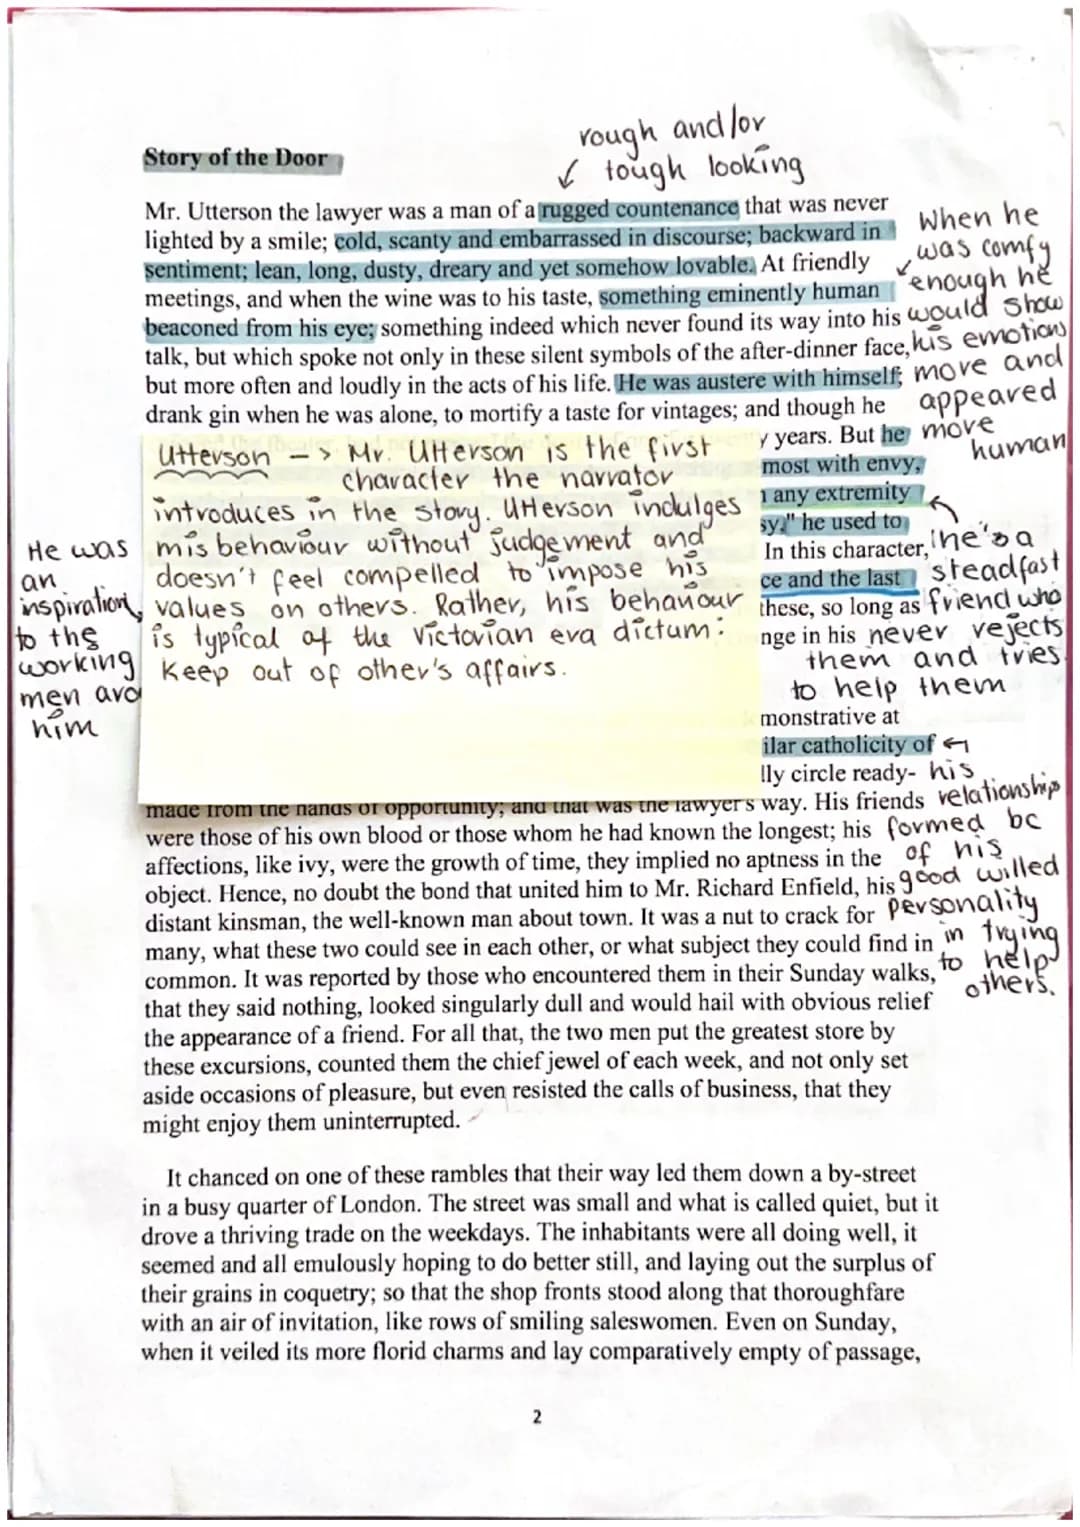 rough and/or
↙ tough looking
Story of the Door
Mr. Utterson the lawyer was a man of a rugged countenance that was never
lighted by a smile; cold, scanty and embarrassed in discourse; backward in
sentiment; lean, long, dusty, dreary and yet somehow lovable. At friendly
meetings, and when the wine was to his taste, something eminently human
beaconed from his eye; something indeed which never found its way into his
talk, but which spoke not only in these silent symbols of the after-dinner face,
but more often and loudly in the acts of his life. He was austere with himself;
drank gin when he was alone, to mortify a taste for vintages; and though he
When he
was comfy
enough he
would show
his emotions
more and
appeared
more
human
y years. But he
most with envy,
any extremity
sy," he used to
In this character,
ce and the last
these, so long as
nge in his
he's a
steadfast
friend who
never rejects
them and tries
to help them
Utterson --> Mr. Utterson is the first
character the narrator
introduces in the story. Utterson indulges
misbehaviour without judgement and
doesn't feel compelled to impose his
values on others. Rather, his behaviour
is typical of the Victorian era dictum:
Keep out of other's affairs.
He was
an
inspiration
to the
working
men aro
him
monstrative at
ilar catholicity of
lly circle ready-
made from the hands of opportunity; and that was the lawyer's way. His friends
were those of his own blood or those whom he had known the longest; his
affections, like ivy, were the growth of time, they implied no aptness in the
object. Hence, no doubt the bond that united him to Mr. Richard Enfield, his
distant kinsman, the well-known man about town. It was a nut to crack for
many, what these two could see in each other, or what subject they could find in
common. It was reported by those who encountered them in their Sunday walks,
that they said nothing, looked singularly dull and would hail with obvious relief
the appearance of a friend. For all that, the two men put the greatest store by
these excursions, counted them the chief jewel of each week, and not only set
aside occasions of pleasure, but even resisted the calls of business, that they
might enjoy them uninterrupted.
his
relationship
formed bc
of his
good willed
personality
in trying
to help
others.
It chanced on one of these rambles that their way led them down a by-street
in a busy quarter of London. The street was small and what is called quiet, but it
drove a thriving trade on the weekdays. The inhabitants were all doing well, it
seemed and all emulously hoping to do better still, and laying out the surplus of
their grains in coquetry; so that the shop fronts stood along that thoroughfare
with an air of invitation, like rows of smiling saleswomen. Even on Sunday,
when it veiled its more florid charms and lay comparatively empty of passage,
2